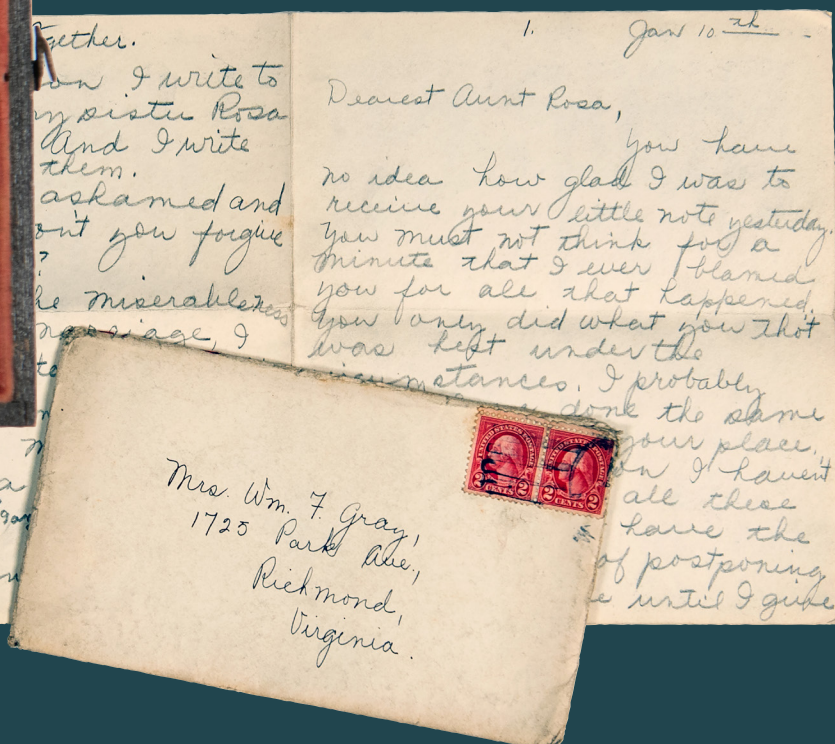 together.
I write to
my sister Rosa
And I write
them.
ashamed and
don't you forgive
?
the miserableness
marriage, I
1.
Jan 10th
Dearest Aunt Rosa,
You have
no idea how glad I was to
receive your little note yesterday.
You must not think for a
minute that I ever blamed
you for all that happened,
You only did what you thot
was best under the
circumstances. I probably
done the same
your place.
I haven't
all these
have the
of postponing
until I give
Mrs. Wm. F. Gray,
1725 Park Ave.,
Richmond,
Virginia.
UNITED STATES POSTAGE
2 CENTS 2
UNITED STATES POSTAGE
2 CENTS 2